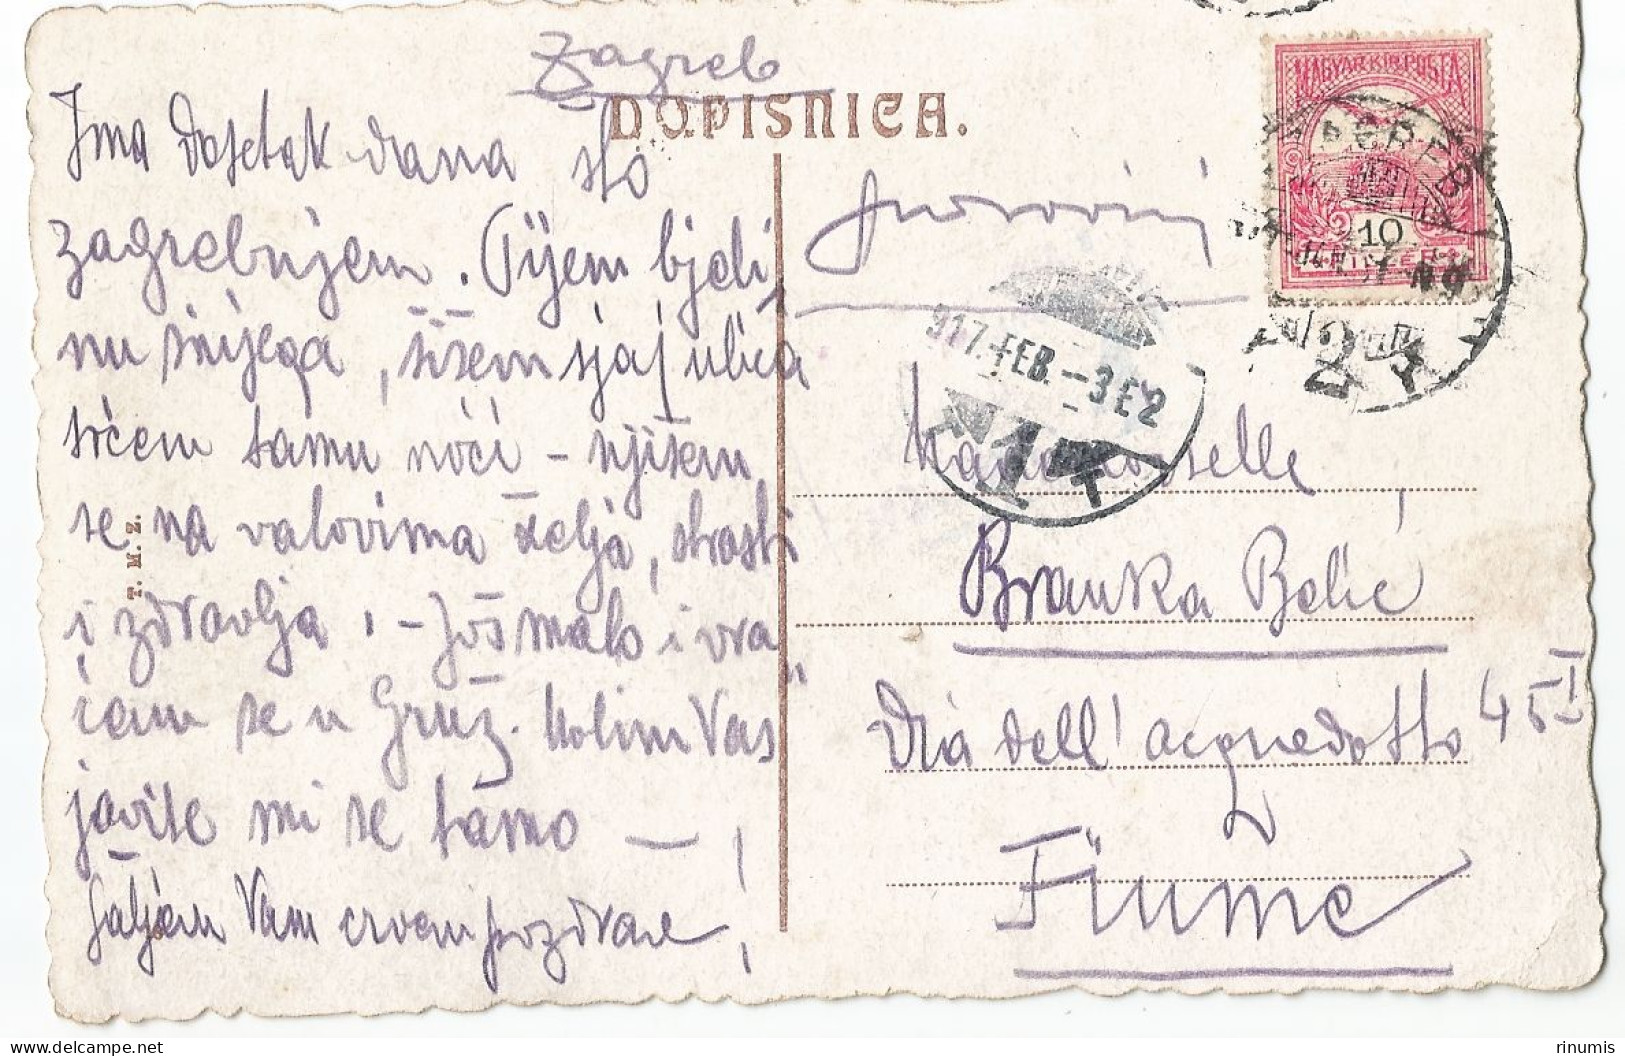 Zagreb
DOPISNICA.
Ima desetak dana što
zagrebujem. Pijem bjeli
nu snijega, sišem sjaj ulica
srčem tamu noći - njišem
se na valovima želja, strasti
i zdravlja. - Još malo i vra
ćam se u Gruž. Molim Vas
javite mi se tamo -
Šaljem Vam crven pozdrav!
T. M. Z.
MAGYAR KIR. POSTA
10
ZAGREB
917. FEB. - 3 E 2
1
Mademoiselle
Branka Belić
Via dell' acquedotto 45 I
Fiume
rinumis